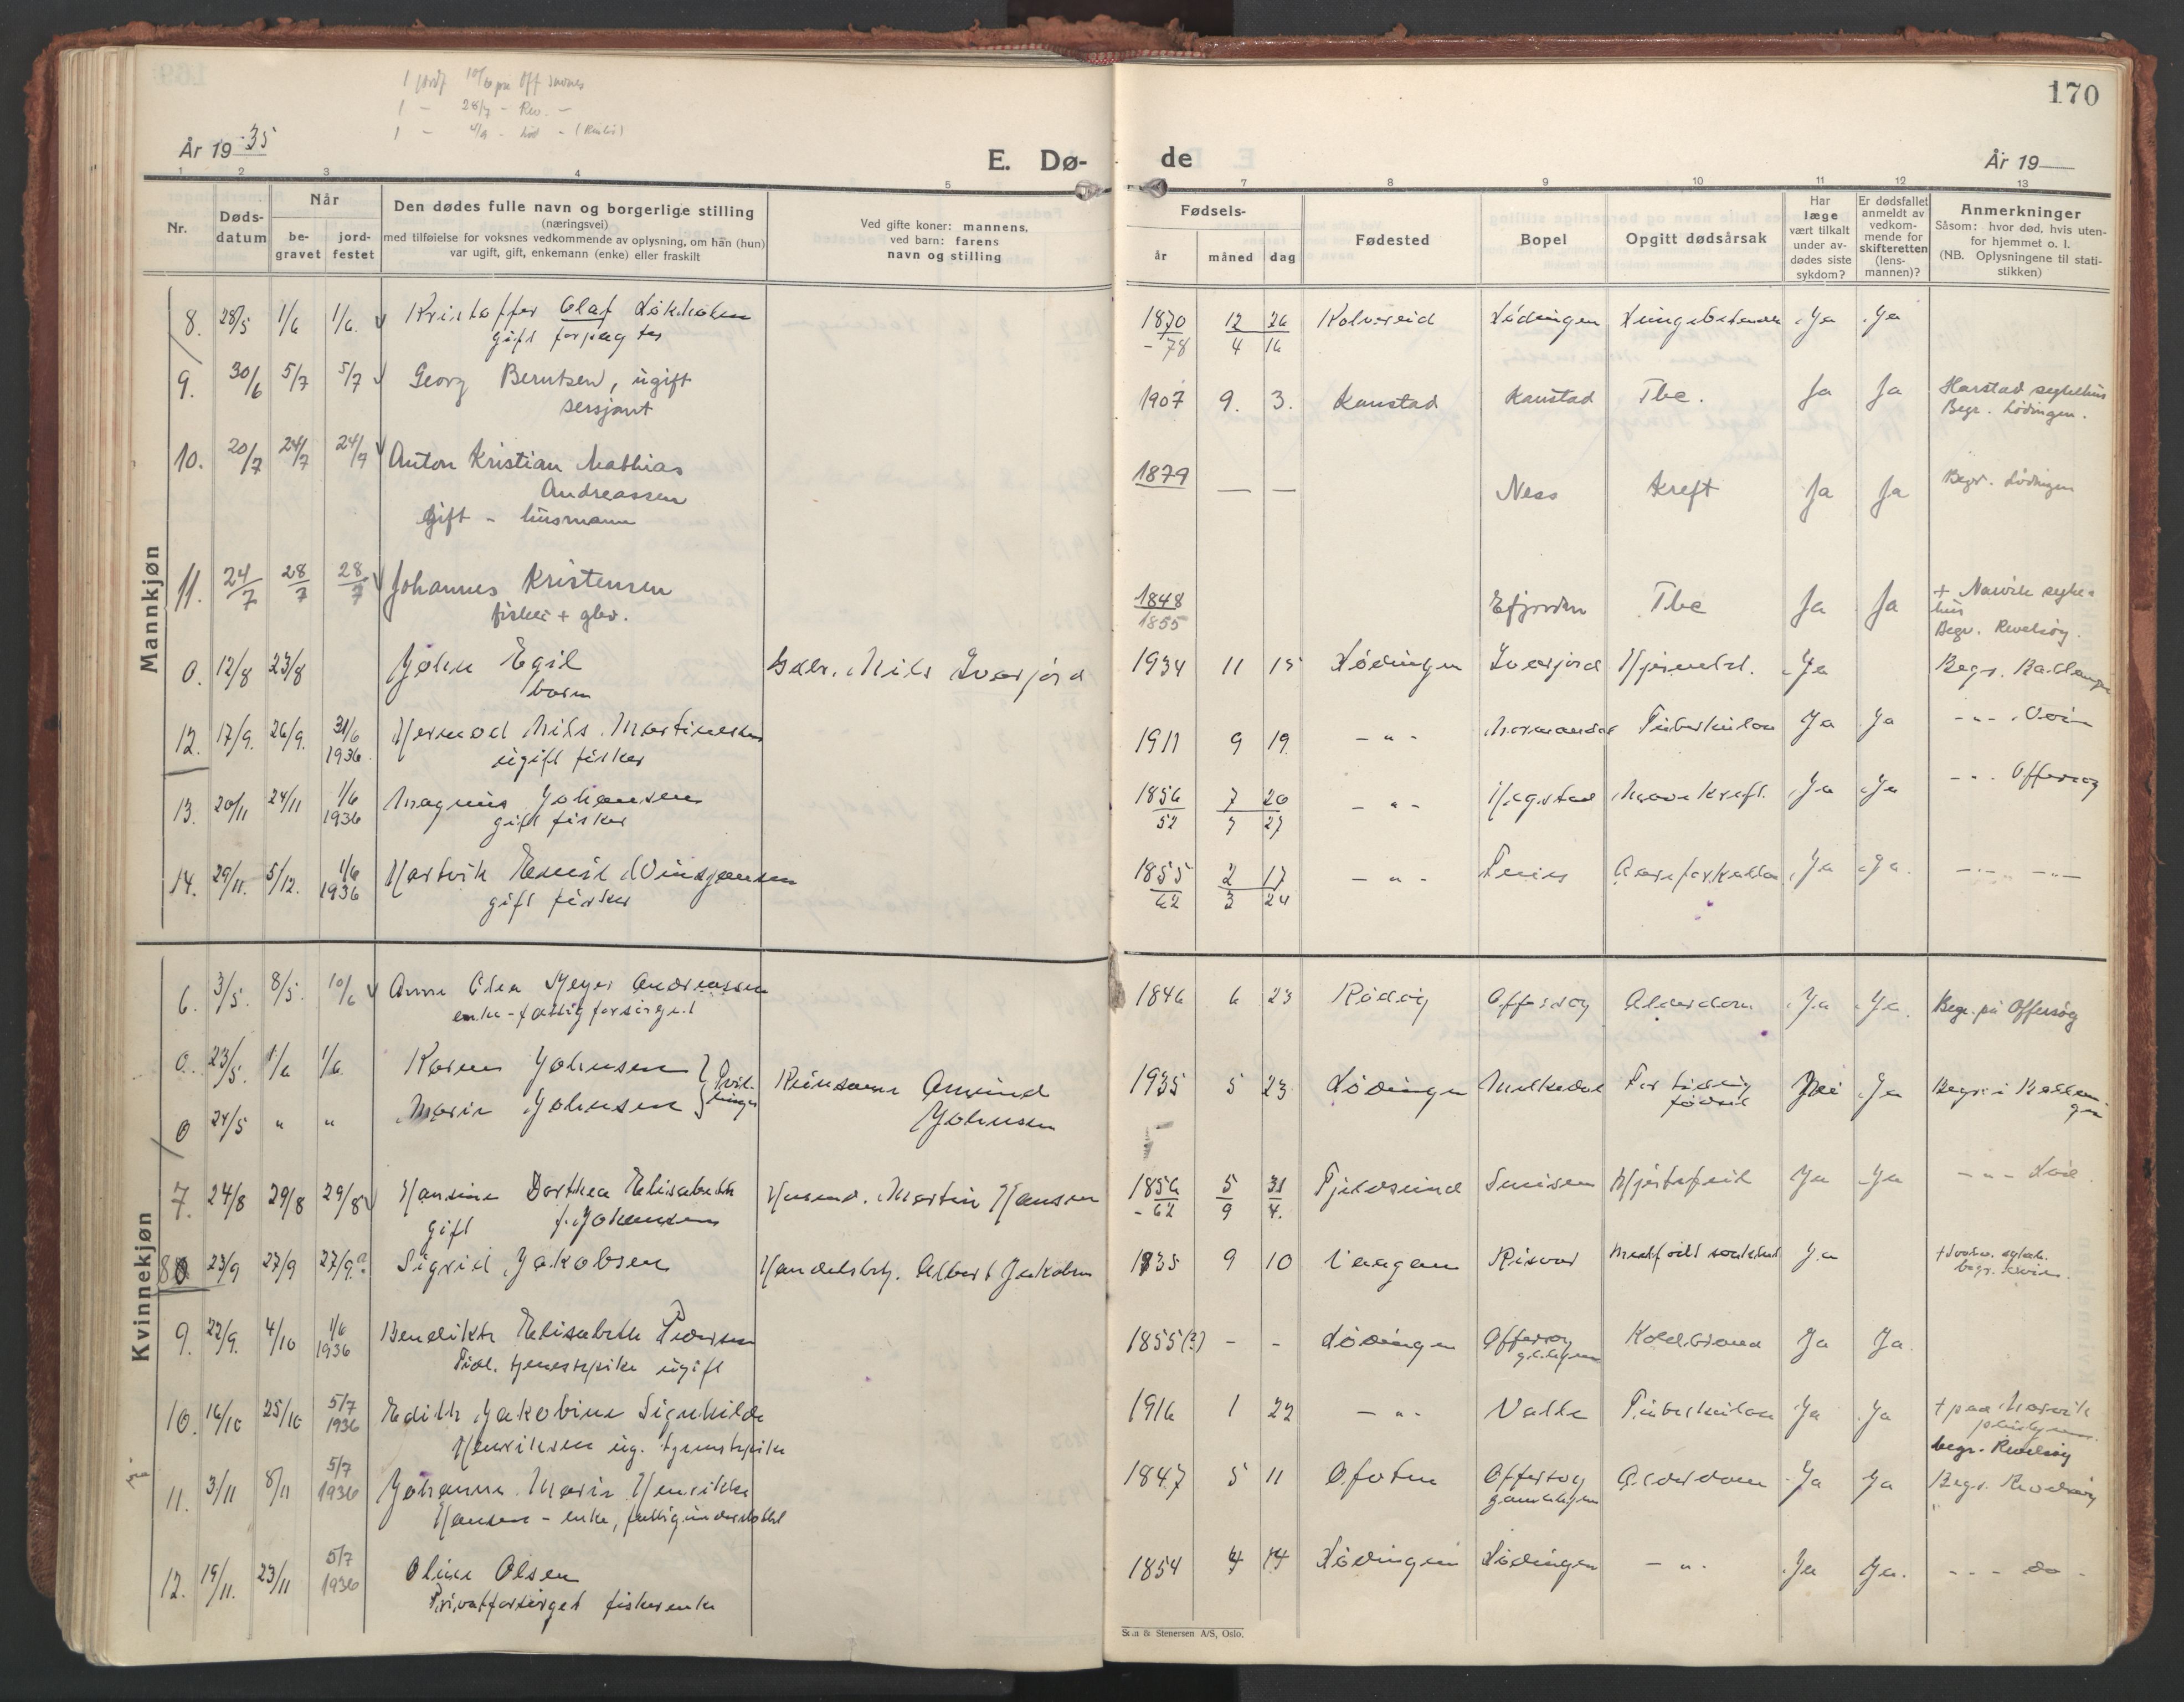 170
År 1935
E. Dø-
de
År 19
1 2 3 4 5 7 8 9 10 11 12 13
Nr.
Døds-
datum
Når
be-
gravet
jord-
festet
Den dødes fulle navn og borgerlige stilling
(næringsvei)
med tilføielse for voksnes vedkommende av oplysning, om han (hun)
var ugift, gift, enkemann (enke) eller fraskilt
Ved gifte koner: mannens,
ved barn: farens
navn og stilling
Fødsels-
år måned dag
Fødested
Bopel
Opgitt dødsårsak
Har
læge
vært tilkalt
under av-
dødes siste
sykdom?
Er dødsfallet
anmeldt av
vedkom-
mende for
skifteretten
(lens-
mannen)?
Anmerkninger
Såsom: hvor død, hvis uten-
for hjemmet o. l.
(NB. Oplysningene til stati-
stikken)
Mannkjøn
8. 28/5 1/6 1/6. Kristoffer Olaf 1870 12 26 Kolvereid Lödingen Ja Ja
gift forpagter - 78 4 16
9. 30/6 5/7 5/7 Georg Berntsen, ugift 1907 9. 3. Kanstad Kanstad Tbc. Ja Ja Harstad sykehus
sersjant Begr. Lödingen.
10. 20/7 24/7 24/7 Anton Kristian Mathias 1879 — — Ness Kreft Ja Ja Begr. Lödingen
Andreassen
Gift - husmann
11. 24/7 28/7 28/7 Johannes Kristensen 1848 Efjorden Tbc Ja Ja + Narvik syke-
fisker + gbr. 1855 hus
Begr. Revelsøy.
0. 12/8 23/8 John Egil Gdbr. Nils Ivarjord 1934 11 15 Lödingen Ivarjord Ja Begr. Ballangen
barn
12. 17/9. 26/9. 31/6 1936 Hermod Nils Martinessen 1911 9 19. - " - Tuberkulose Ja Ja - " -
ugift fisker
13. 20/11 24/11 1/6 1936 Magnus Johansen 1856 7 20 - " - Hegstad Mavekreft. Ja Ja - " - Offersøy
gift fisker 52 7 27
14. 29/11. 5/12. 1/6 1936 Hartvik Emil 1855 2 17 - " - Ja Ja. - " - - " -
gift fisker 62 3 24
Kvinnekjøn
6. 3/5. 8/5. 10/6 Anna Meyer Andreassen 1846 6 23 Rödöy Offersøy Alderdom Ja Ja. Begr. på Offersøy
enke - fattigforsörget
0. 23/5. 1/6 1/6. Karen Johnsen } Tvil- Reinsame Amund 1935 5 23 Lödingen Melkedal For tidlig Nei Ja Begr. i Ballan-
0 24/5 " " Marie Johnsen } linger Johnsen födsel gen
7. 24/8 29/8 29/8 Hansine Dorthea Elisabeth Husmd. Martin Hansen 1856 5 31 Fjeldsund Hjertefeil Ja Ja - " - Löd.
gift f. Johansen - 62 9 4.
8 23/9 27/9 27/9. Sigrid Jakobsen Handelsbtj. Albert Jakobsen 1935 9 10 Vaagan Risvær Medfödt Ja
9. 22/9. 4/10 1/6 1936 Bendikte Elisabeth Pedersen 1855(?) - - Lödingen Offersøy Koldbrand Ja Ja.
Tidl. tjenestepike ugift
10. 16/10 25/10 5/7 1936 Edith Jakobine Signhilde 1916 1 22 - " - Valle Tuberkulose Ja Ja + paa Narvik
Henriksen ug. tjenestepike begr. Revelsøy
11. 3/11 8/11 5/7 1936 Johanna Marie Henrikke 1847 5 11 Ofoten Offersøy Alderdom Ja Ja Begr. Revelsøy
Hansen - enke, fattigunderstöttet gamlehjem
12. 19/11. 23/11 5/7 1936 Oline Olsen 1854 4 14 Lödingen Lödingen - " - Ja Ja. - - - do -
Privatforsörget fiskerenke
& Stenersen A/S, Oslo.